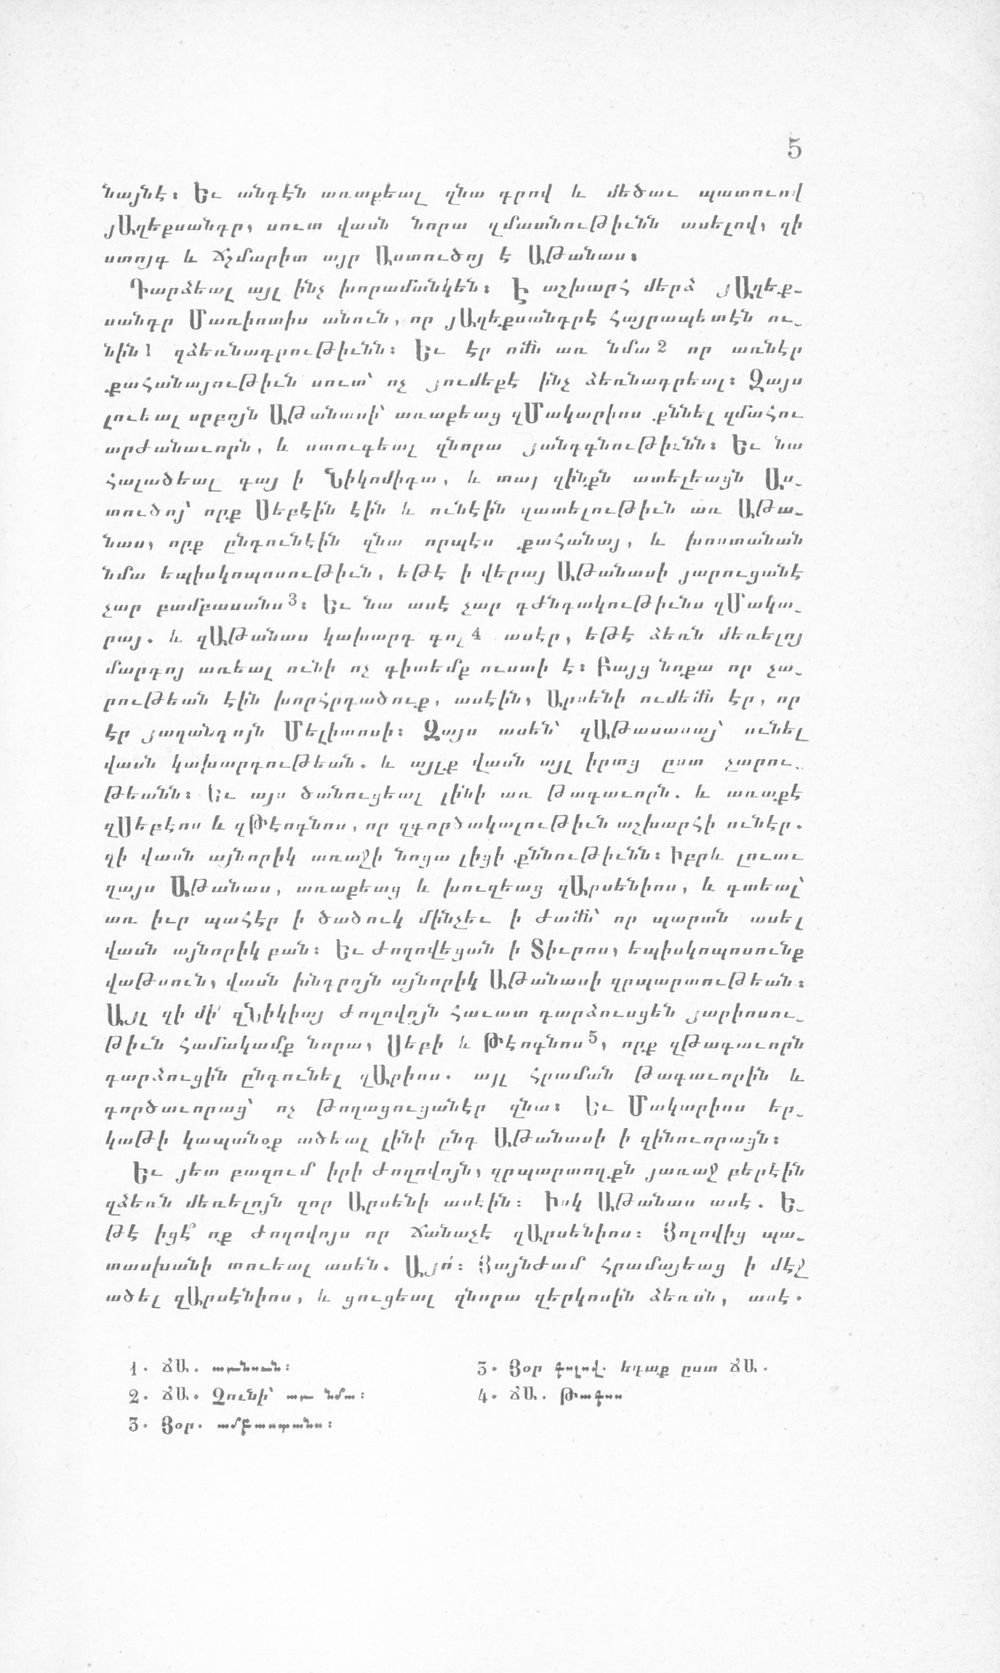 5
նայնէ։ Եւ անդէն առաքեալ զնա գրով և մեծաւ պատուով
յԱղեքսանդր, սուտ վասն նորա զմատնութիւնն ասելով, զի
ստոյգ և ճշմարիտ այր Աստուծոյ է Աթանաս։
Դարձեալ այլ ինչ խորամանկեն։ Է աշխարհ մերձ յԱղեք-
սանդր Մառիոտիս անուն, որ յԱղեքսանդրէ Հայրապետէն ու-
նին1 զձեռնադրութիւնն։ Եւ էր ոմն առ նմա2 որ առնէր
քահանայութիւն սուտ՝ ոչ յումեքէ ինչ ձեռնադրեալ։ Զայս
լուեալ սրբոյն Աթանասի՝ առաքեաց զՄակարիոս քննել զմահու
արժանաւորն, և ստուգեալ զնորա յանդգնութիւնն։ Եւ նա
հալածեալ գայ ի Նիկոմիդա, և տայ զինքն ատելեացն Աս-
տուծոյ՝ որք Սեբէին էին և ունէին զատելութիւն առ Աթա-
նաս, որք ընդունէին զնա որպէս քահանայ, և խոստանան
նմա եպիսկոպոսութիւն, եթէ ի վերայ Աթանասի յարուցանէ
չար բամբասանս3։ Եւ նա ասէ չար դժնդակութիւնս զՄակա-
րայ. և զԱթանաս կախարդ գոլ4 ասէր, եթէ ձեռն մեռելոյ
մարդոյ առեալ ունի ոչ գիտեմք ուստի է։ Բայց նոքա որ չա-
րութեան էին խորհրդածուք, ասէին, Արսենի ումեմն էր, որ
էր յաղանդոյն Մելիտոսի։ Զայս ասեն՝ զԱթասասայ՝ ունել
վասն կախարդութեան. և այլք վասն այլ իրաց ըստ չարու-
թեանն։ Եւ այս ծանուցեալ լինի առ Թագաւորն. և առաքէ
զՍեբէոս և զԹէոգնոս, որ զգործակալութիւն աշխարհի ունէր.
զի վասն այնորիկ առաջի նոցա լիցի քննութիւնն։ Իբրև լուաւ
զայս Աթանաս, առաքեաց և խուզեաց զԱրսենիոս, և գտեալ՝
առ իւր պահէր ի ծածուկ մինչեւ ի ժամն՝ որ պարտն ասել
վասն այնորիկ բան։ Եւ ժողովեցան ի Տիւրոս, եպիսկոպոսունք
վաթսուն, վասն խնդրոյն այնորիկ Աթանասի զրպարտութեան։
Այլ զի մի՛ զՆիկիայ ժողովոյն հաւատ դարձուսցեն յարիոսու-
թիւն համակամք նորա, Սեբի և Թէոգնոս5, որք զԹագաւորն
դարձուցին ընդունել զԱրիոս. այլ հրաման Թագաւորին և
գործաւորաց՝ ոչ թողացուցանէր զնա։ Եւ Մակարիոս եր-
կաթի կապանօք ածեալ լինի ընդ Աթանասի ի զինուորացն։
Եւ յետ բազում իրի ժողովոյն, զրպարտողքն յառաջ բերէին
զձեռն մեռելոյն զոր Արսենի ասէին։ Իսկ Աթանաս ասէ. Ե-
թէ իցէ՞ ոք ժողովոյս որ ճանաչէ զԱրսենիոս։ Յոլովից պա-
տասխանի տուեալ ասեն. Այո՛։ Յայնժամ հրամայեաց ի մէջ
ածել զԱրսէնիոս, և ցուցեալ զնորա զերկոսին ձեռսն, ասէ.
1. ՃԱ. առնուն։
2. ՃԱ. Չունի՝ առ նմա։
3. Յօր. ամբաստանս։
3. Յօր գոլով. եդաք ըստ ՃԱ.
4. ՃԱ. Թագոս